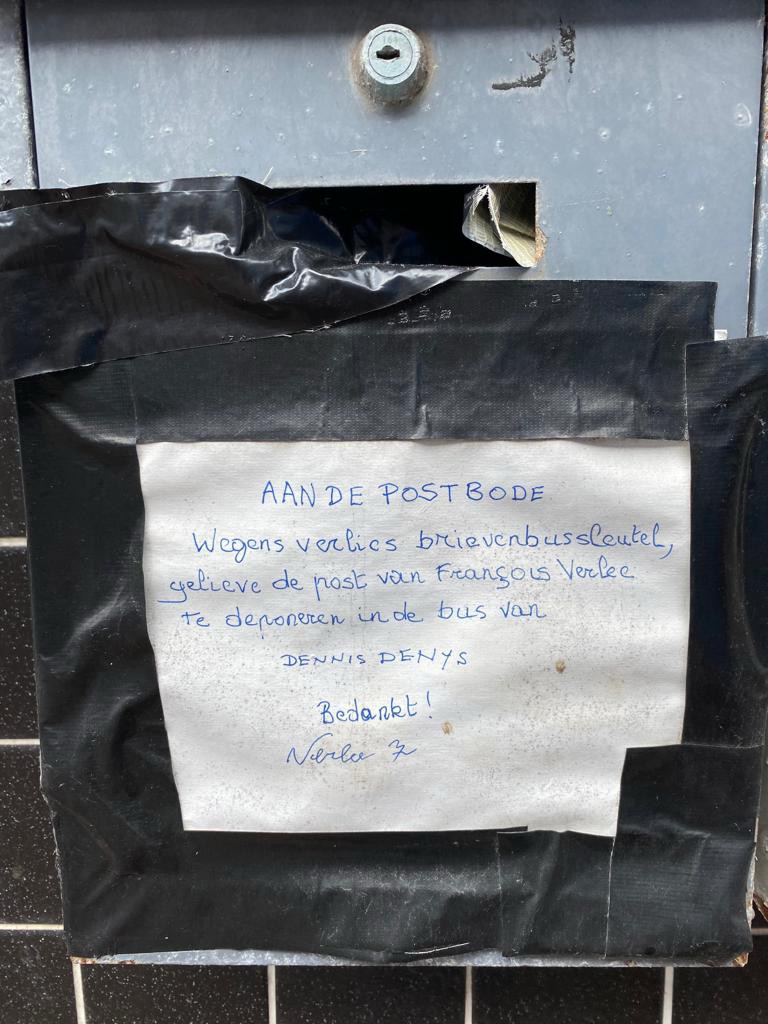 AAN DE POSTBODE
Wegens verlies brievenbussleutel,
gelieve de post van François Verlee
te deponeren in de bus van
DENNIS DENYS
Bedankt!
Verlee